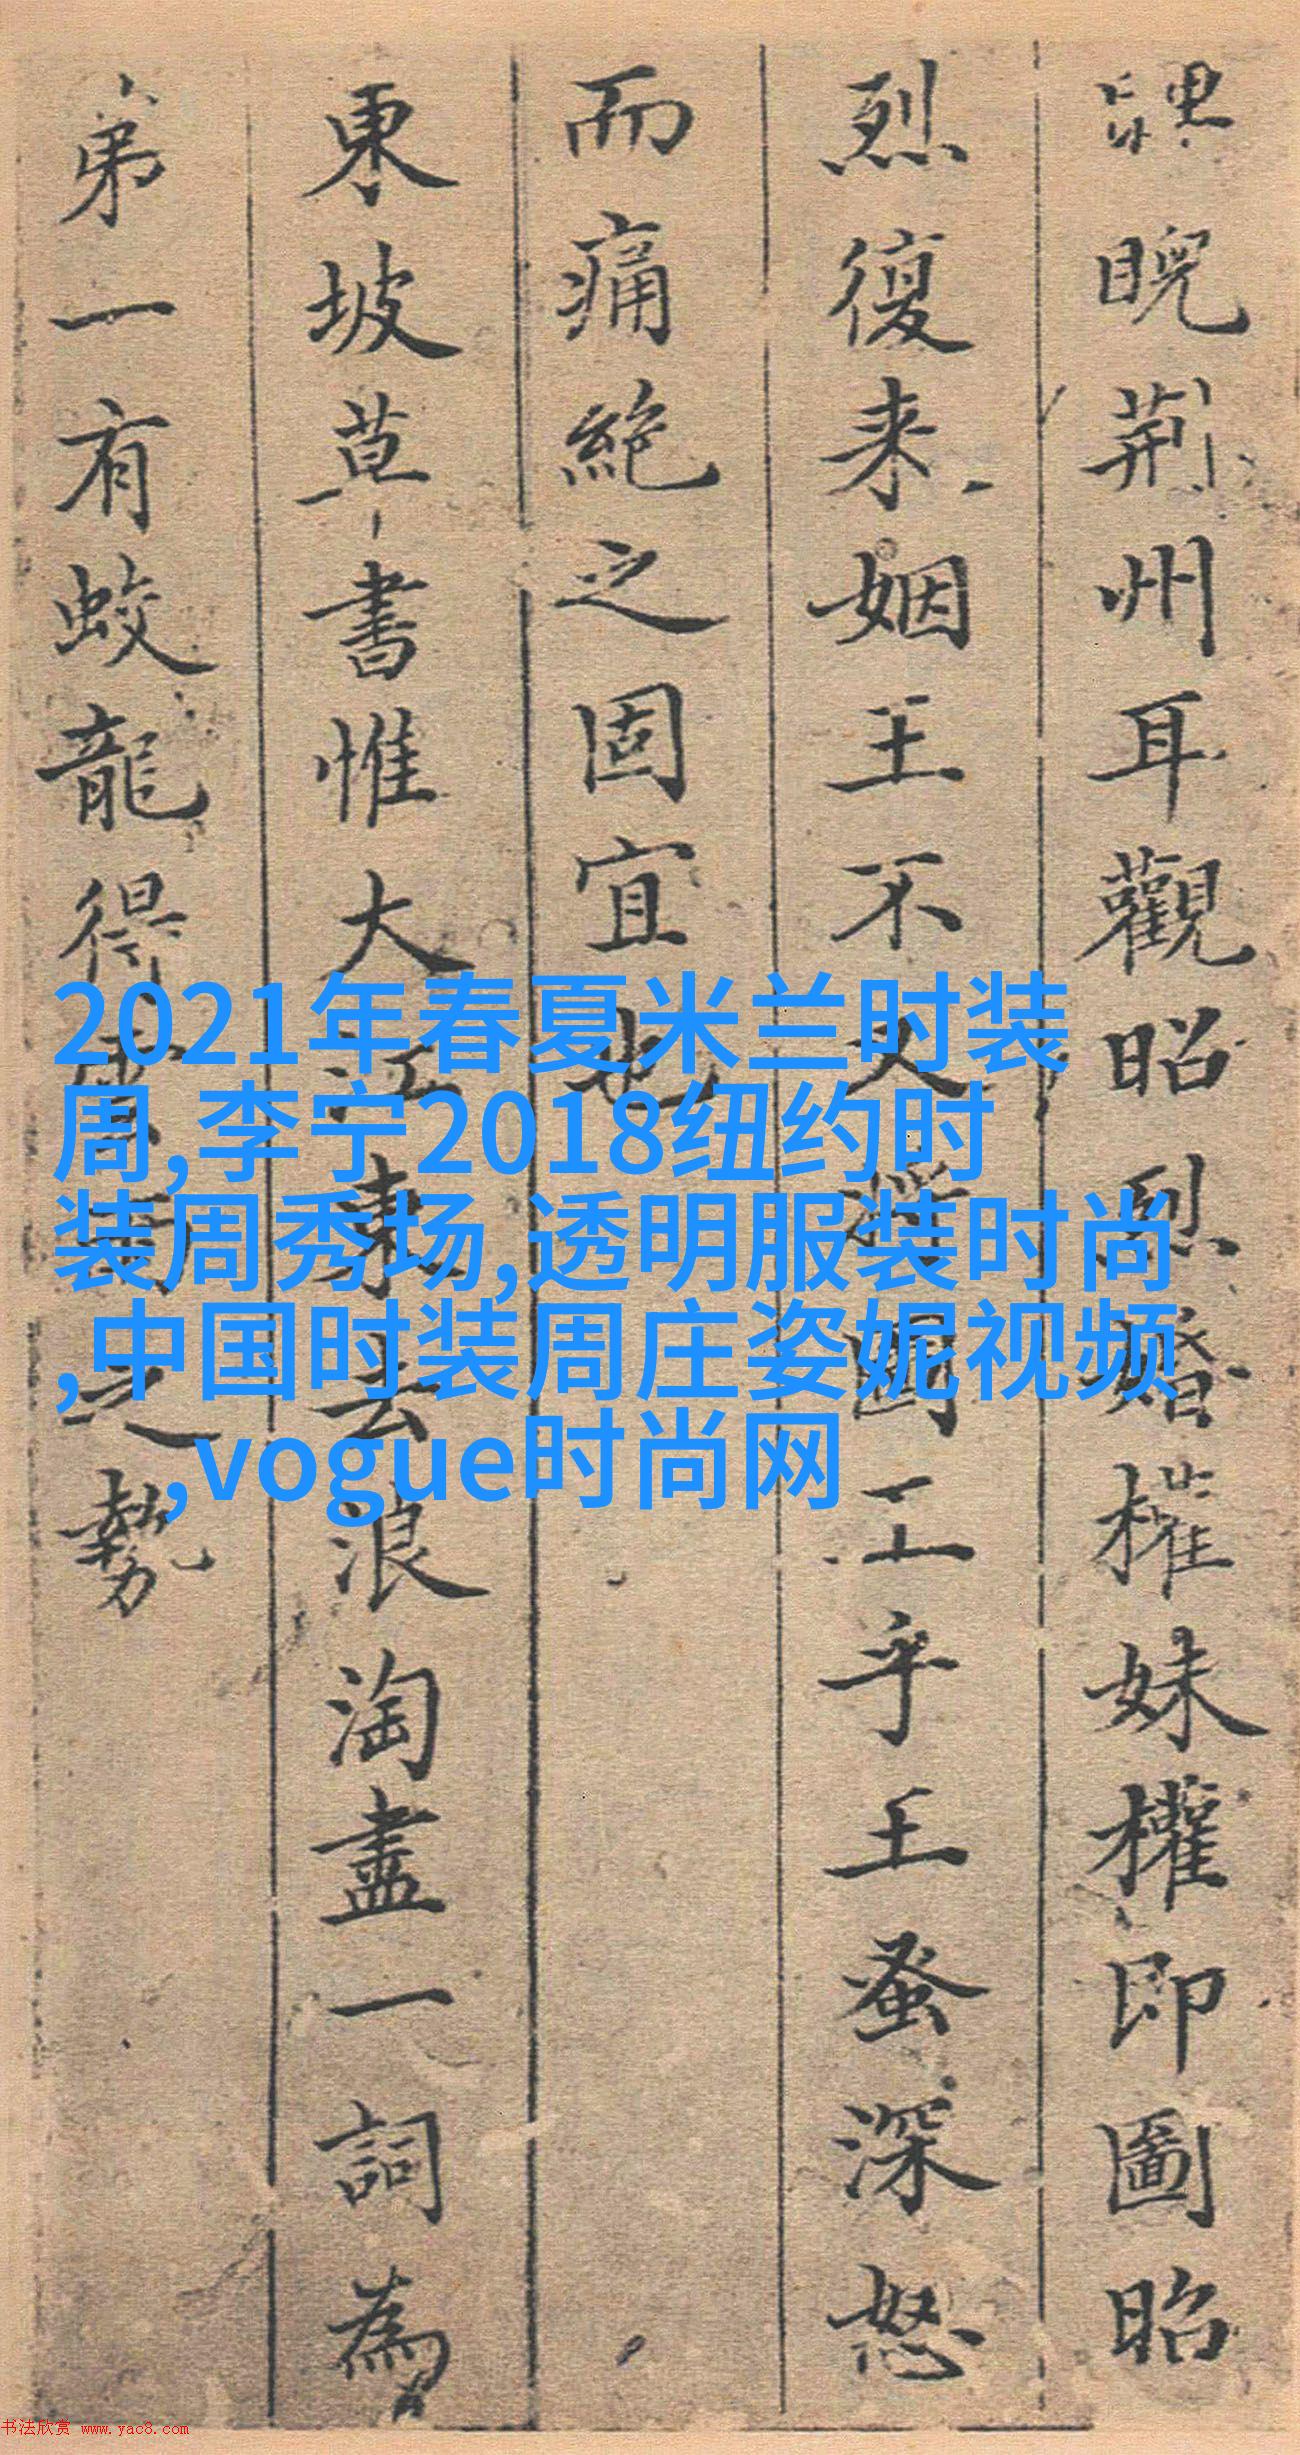 睨荊州耳觀昭烈婚權妹權即圖昭
烈復来姻王不久將圖乎王蚤深怒
而痛絶之固宜也
東坡草書惟大江東去浪淘盡一詞為
弟一有蛟龍得雲雨之勢
2021年春夏米兰时装
周,李宁2018纽约时
装周秀场,透明服装时尚
,中国时装周庄姿妮视频
,vogue时尚网
书法欣赏 www.yac8.com